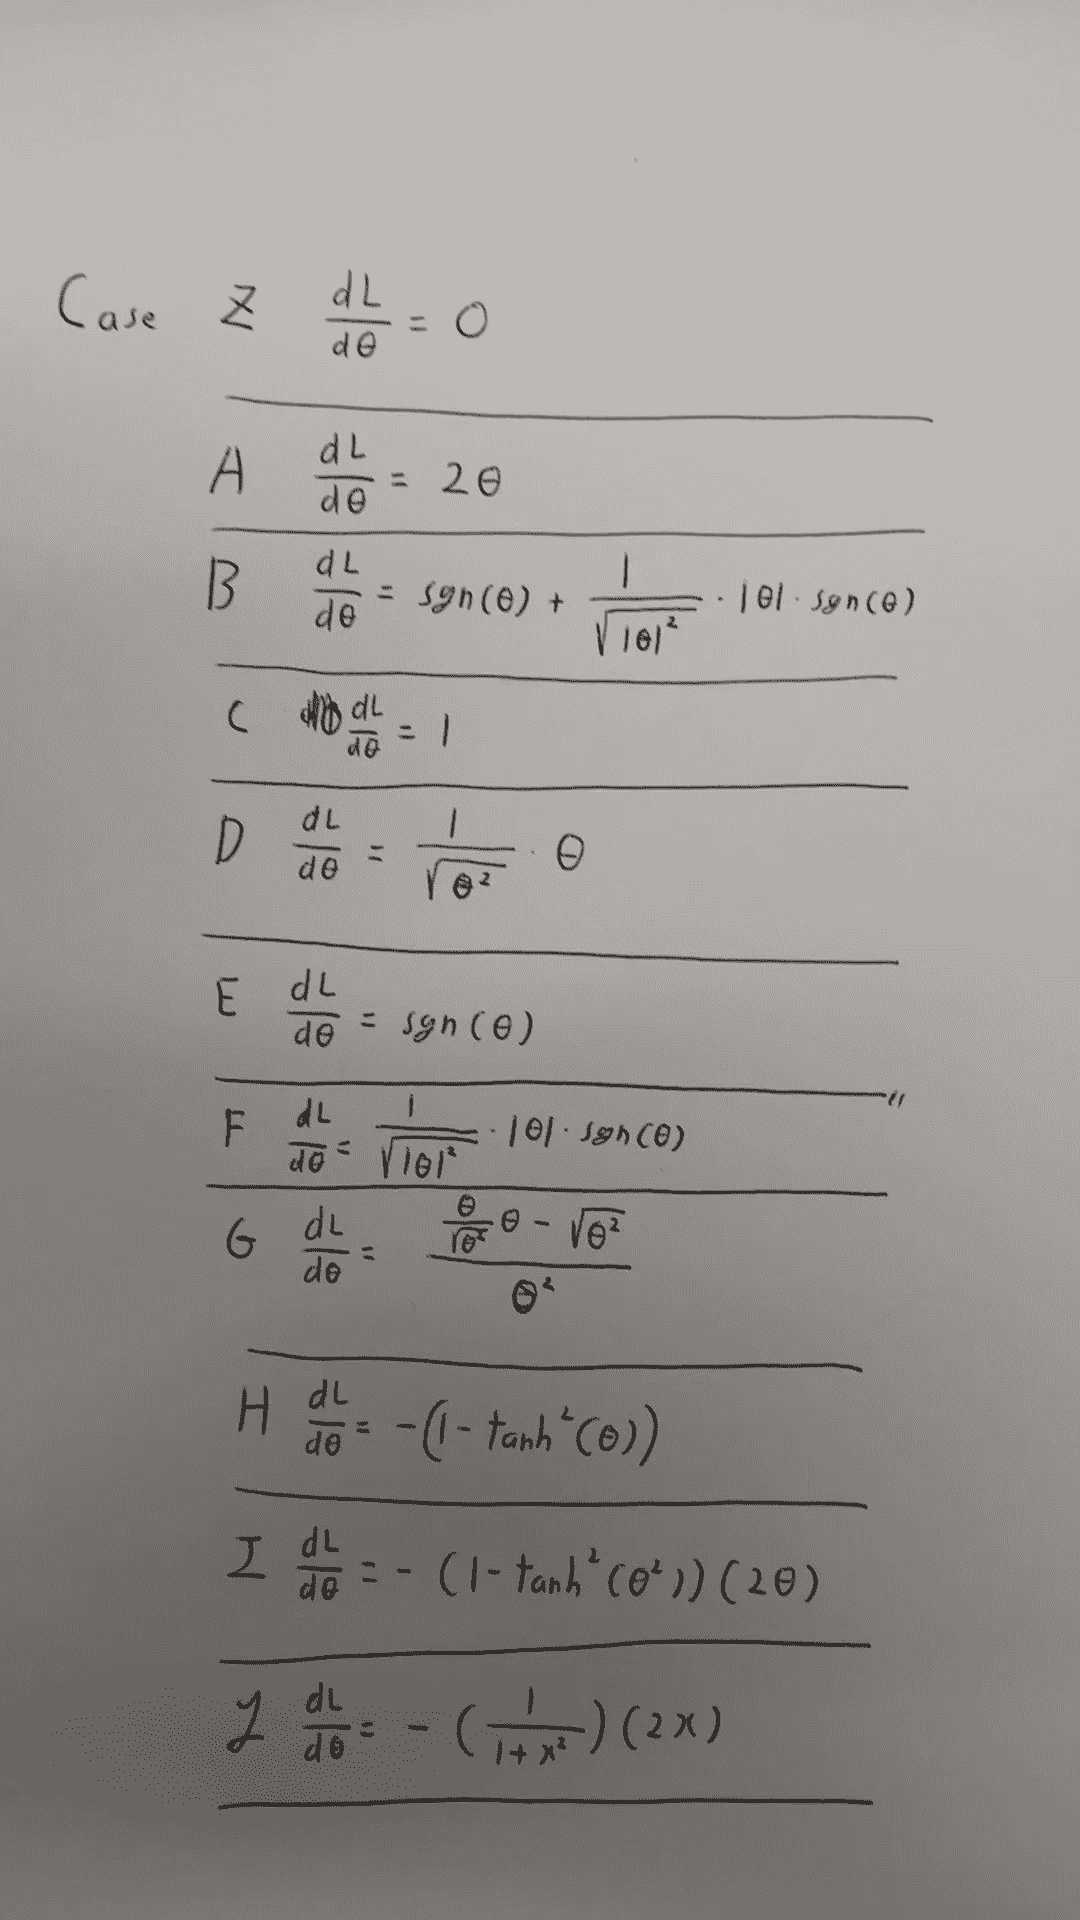 Case Z dL/dθ = 0
A dL/dθ = 2θ
B dL/dθ = sgn(θ) + 1/√|θ|² · |θ| · sgn(θ)
C dL/dθ = 1
D dL/dθ = 1/√θ² · θ
E dL/dθ = sgn(θ)
F dL/dθ = 1/√|θ|² · |θ| · sgn(θ)
G dL/dθ = (θ/√θ² θ - √θ²)/θ²
H dL/dθ = -(1 - tanh²(θ))
I dL/dθ = -(1 - tanh²(θ²))(2θ)
J dL/dθ = -(1/(1+x²))(2x)